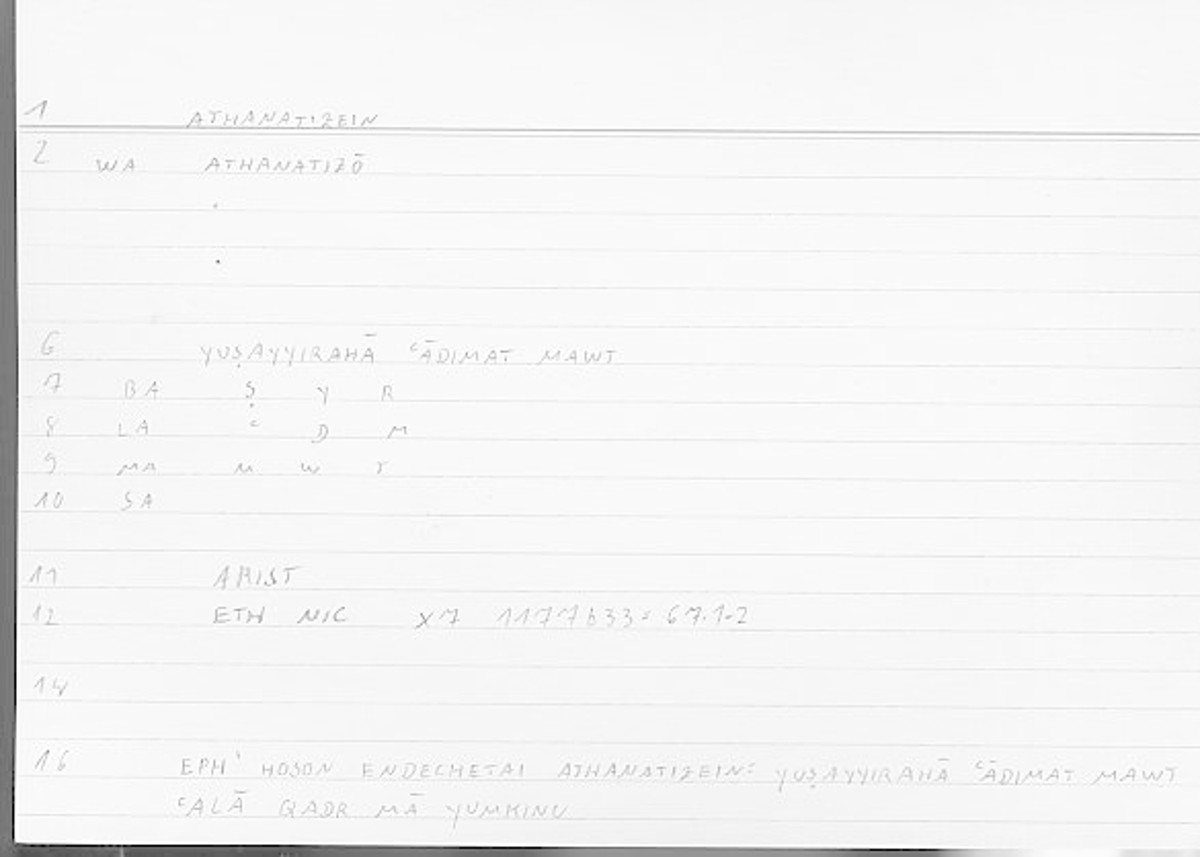 1 ATHANATIZEIN
2 WA ATHANATIZŌ
6 YUṢAYYIRAHĀ ʿĀDIMAT MAWT
7 BA Ṣ Y R
8 LA ʿ D M
9 MA M W T
10 SA
11 ARIST
12 ETH NIC X7 1177b33 = 67.1-2
14
16 EPH' HOSON ENDECHETAI ATHANATIZEIN = YUṢAYYIRAHĀ ʿĀDIMAT MAWT
ʿALĀ QADR MĀ YUMKINU